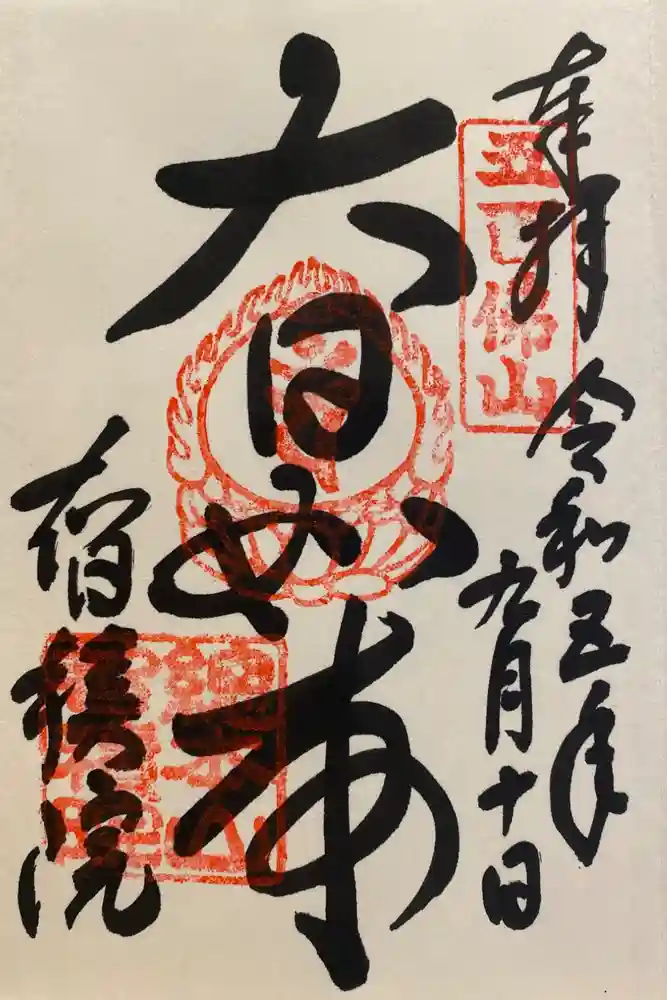 奉拝
令和五年
九月十日
五百佛山
大日如来
智積院